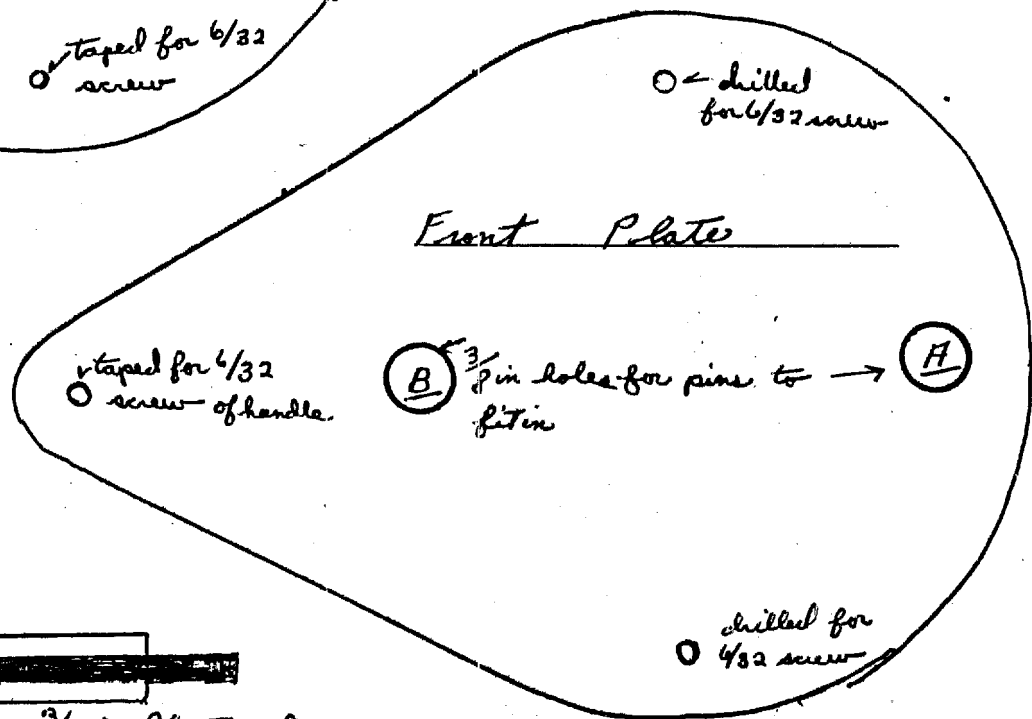 taped for 6/32
screw
drilled
for 6/32 screw
Front Plate
taped for 6/32
screw of handle.
B
3/8 in holes for pins to
fit in
A
drilled for
6/32 screw